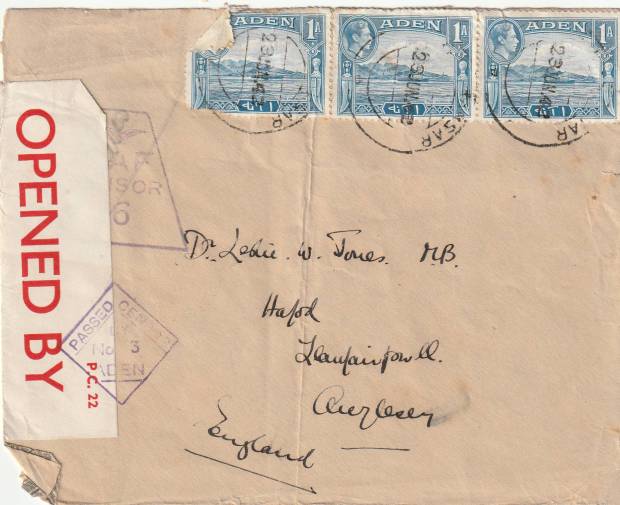 ADEN 1A
ADEN 1A
ADEN 1A
OPENED BY
P.C. 22
6
PASSED CENSOR
No. 3
ADEN
Dr. Leslie. W. Jones. M.B.
Hafod
Llanfairpwll.
Anglesey
England